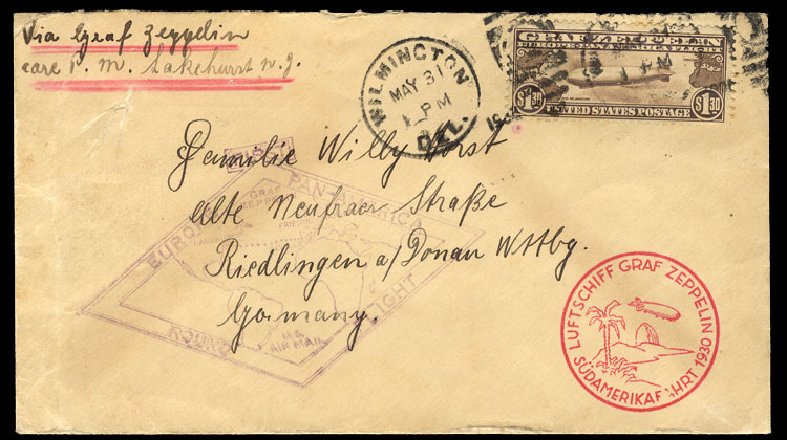 Via Graf Zeppelin
care P. M. Lakehurst N. J.
WILMINGTON
MAY 31
1 PM
DEL.
GRAF ZEPPELIN
EUROPE PAN AMERICA FLIGHT
$1.30 $1.30
UNITED STATES POSTAGE
Familie Willy Horst
Alte Neufraer Straße
Riedlingen a/Donau Wttbg.
Germany.
FIRST
EUROPE
PAN-AMERICA
ROUND
FLIGHT
GRAF
ZEPPELIN
U.S.
AIR MAIL
LUFTSCHIFF GRAF ZEPPELIN
SÜDAMERIKAFAHRT 1930